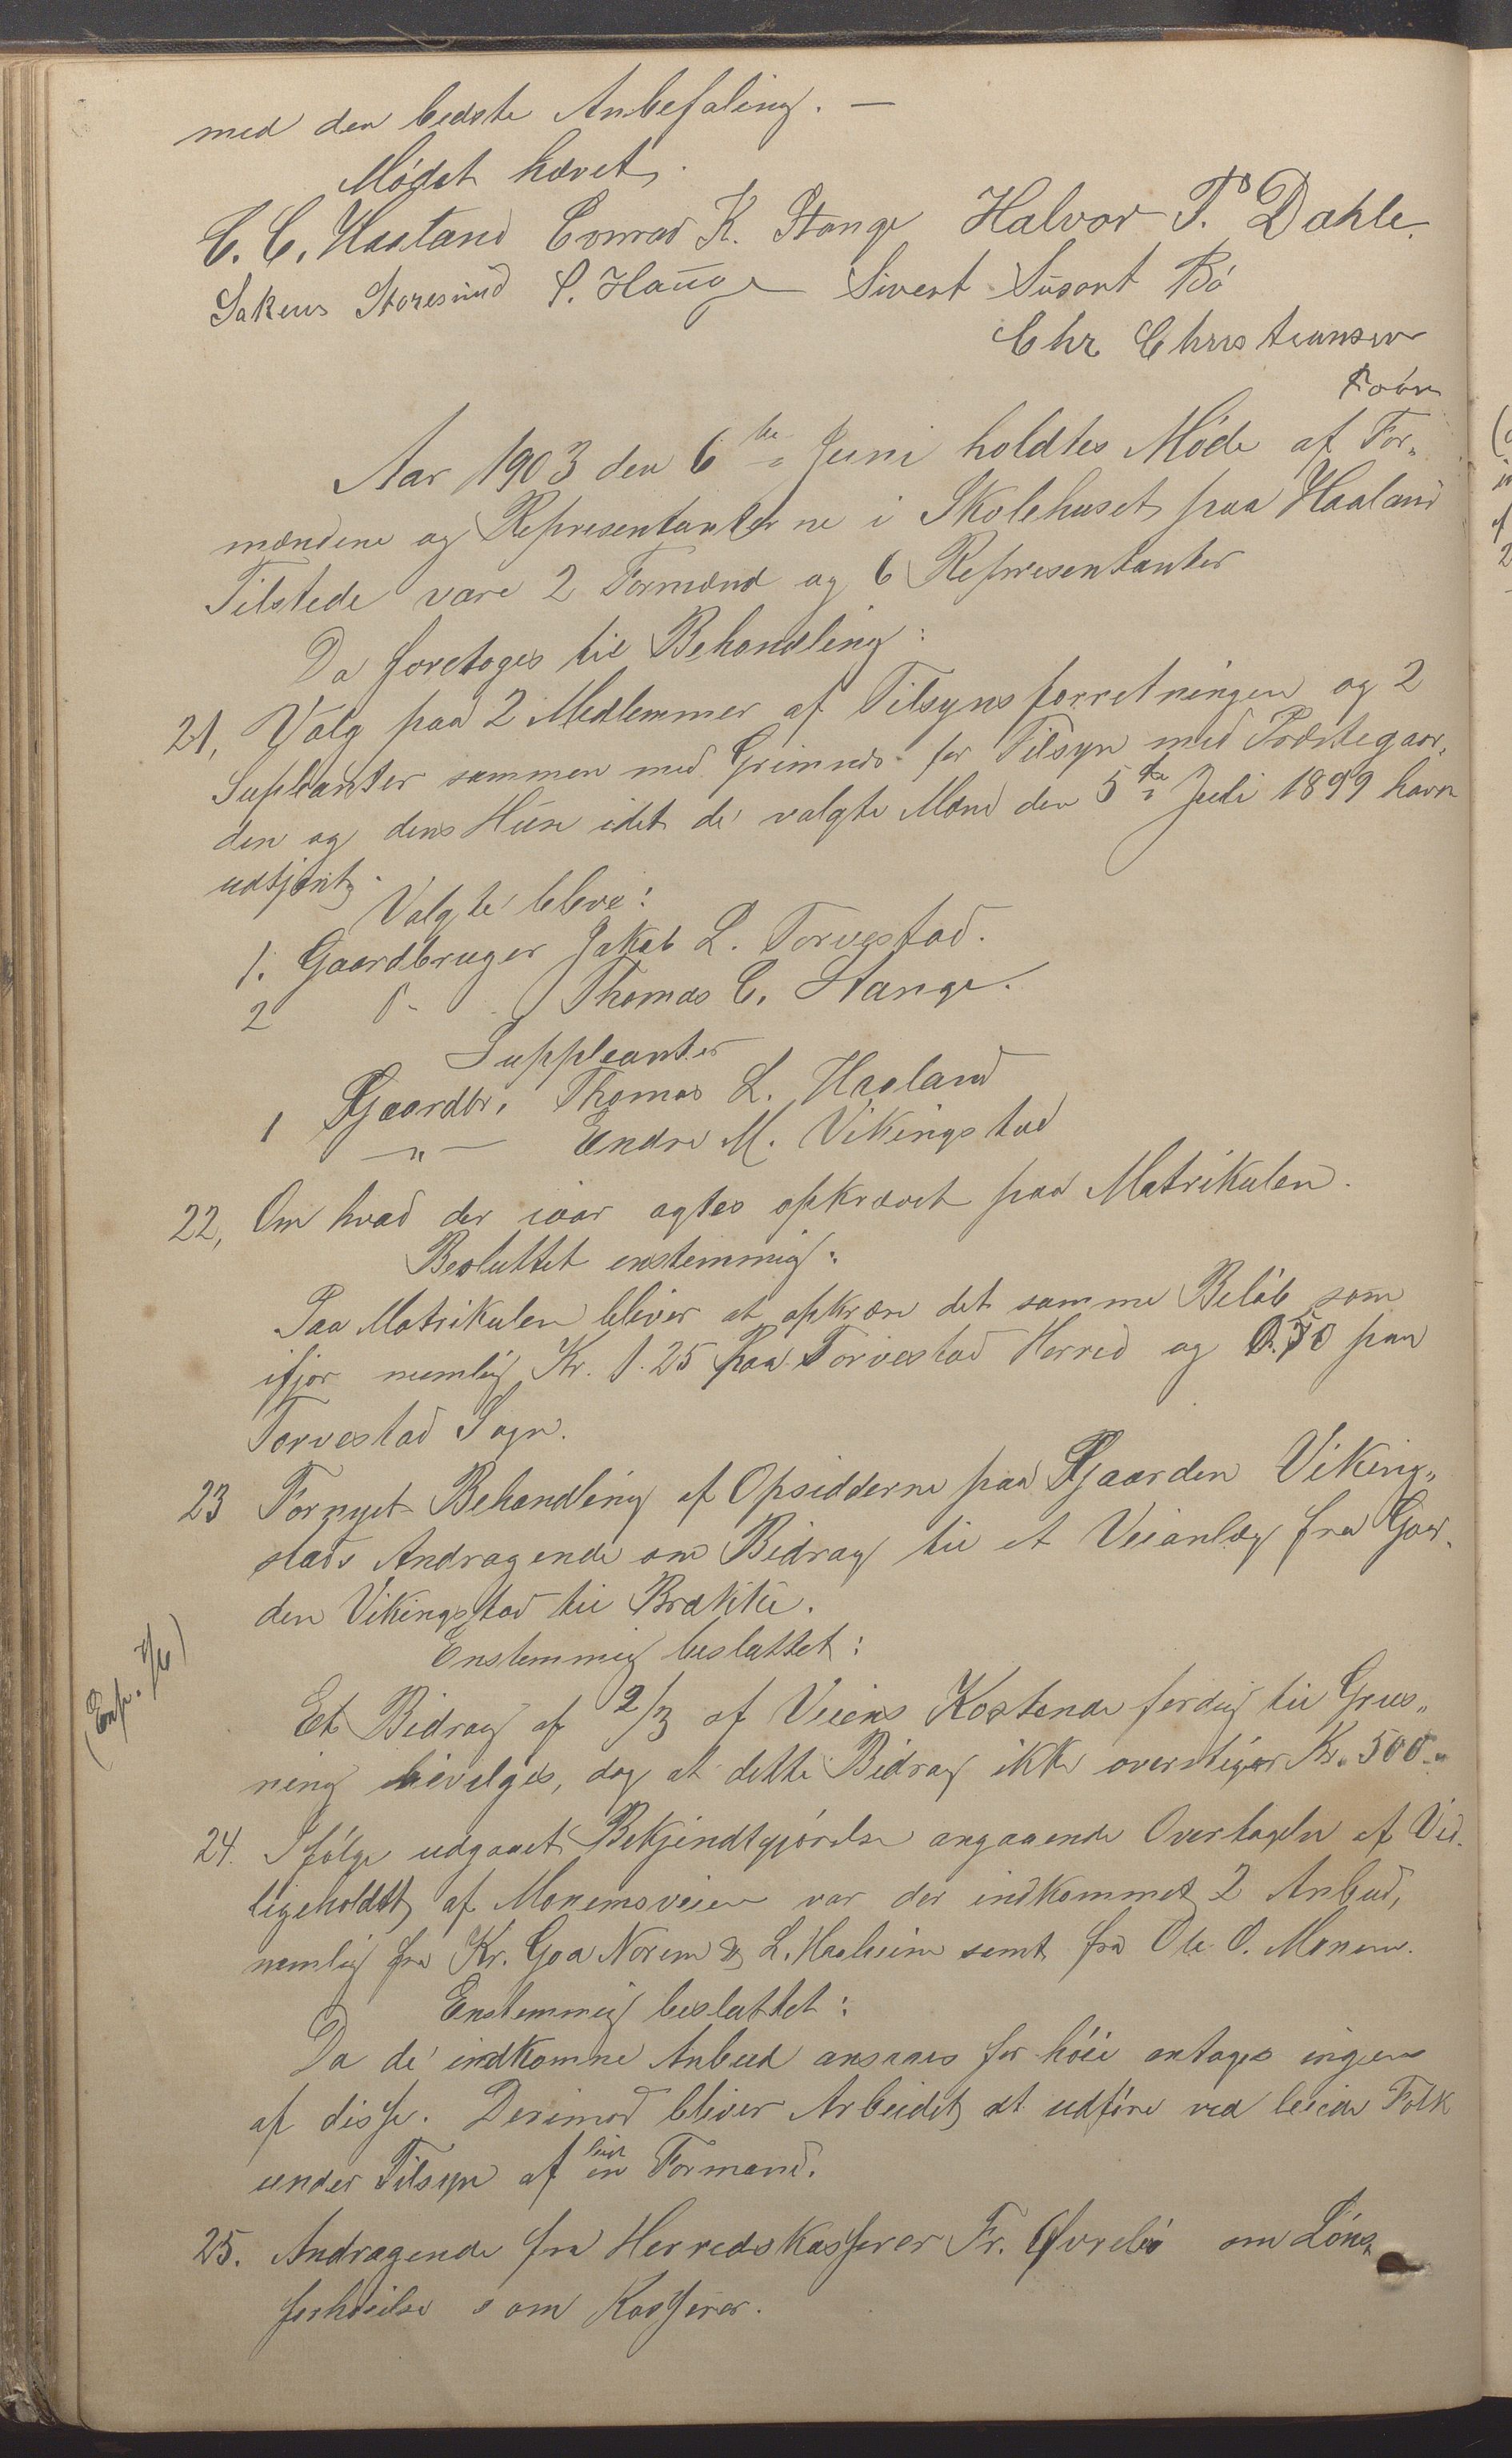 med den bedste Anbefaling. —
Mødet hævet.
C. C. Haaland Conrad K. Stange Halvor T. Dahle
Sakeus Storesund S. Hauge Sivert Bø
Chr Christiansen
Aar 1903 den 6te Juni holdtes Møde af For„
mændene og Representanterne i Skolehuset paa Haaland
Tilstede vare 2 Formænd og 6 Representanter
Da foretoges til Behandling:
21, Valg paa 2 Medlemmer af Tilsynsforretningen og 2
Supleanter sammen med for Tilsyn med Præstegaar„
den og dens Huse idet de valgte Mænd den 5te Juli 1899 have
udtjent.
Valgte bleve:
1. Gaardbruger Jakob L. Torvestad.
2 Thomas C. Stange.
Suppleanter
1 Gaardbr. Thomas L. Haaland
—„— Endre M. Vikingstad
22, Om hvad der iaar agtes opkrævet paa Matrikulen.
Besluttet enstemmig:
Paa Matrikulen bliver at opkræve det samme Beløb som
ifjor nemlig Kr. 1.25 paa Torvestad Herred og 0.70 paa
Torvestad Sogn.
23 Fornyet Behandling af Opsidderne paa Gaarden Viking„
stads Andragende om Bidrag til et Veianlæg fra Gaar„
den Vikingstad til Brække.
Enstemmig besluttet:
(Exp. 7/6)
Et Bidrag af 2/3 af Veiens Kostende færdig til Grus„
ning bevilges, dog at dette Bidrag ikke overstiger Kr. 500.„
24. Ifølge udgaaet Bekjendtgjørelse angaaende Overtagelse af Ved„
ligeholdet af Monemsveien var der indkommet 2 Anbud,
nemlig fra Kr. Goa Norem & L. Haaheim samt fra Ole O. Monem.
Enstemmig besluttet:
Da de indkomne Anbud ansaaes for høie antages ingen
af disse. Derimod bliver Arbeidet at udføre ved leiede Folk
under Tilsyn af en leiet Formand.
25. Andragende fra Herredskasserer Fr. Øvrebø om Løns„
forhøielse som Kasserer.